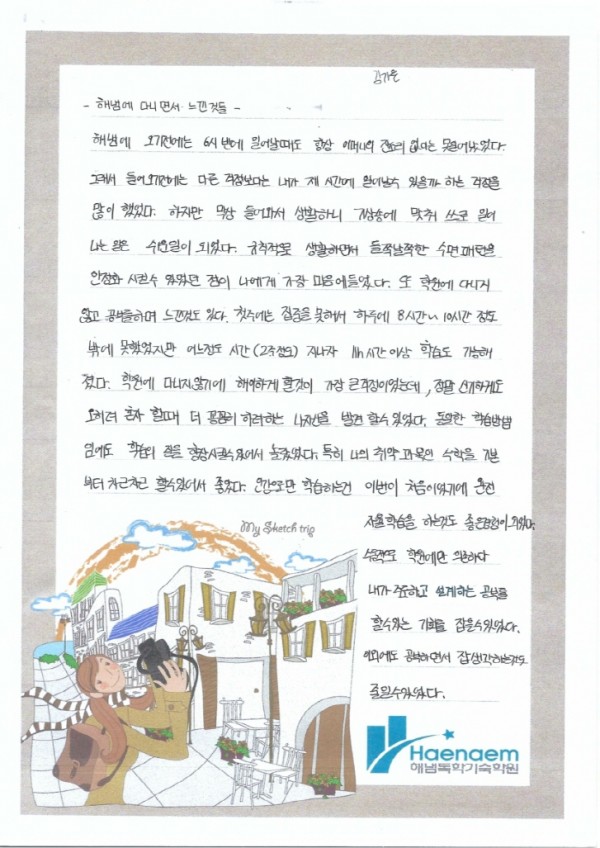 김가은
- 해냄에 다니면서 느낀것들 -
해냄에 오기전에는 6시 반에 일어날때도 항상 어머니의 잔소리 없다는 못일어났었다.
그래서 들어오기전에는 다른 걱정보다는 내가 제 시간에 일어날수 있을까 하는 걱정을
많이 했었다. 하지만 막상 들어와서 생활하니 기상송에 맞춰 스스로 일어
나는 일은 수월일이 되었다. 규칙적으로 생활하면서 들쭉날쭉한 수면 패턴을
안정화 시킬수 있었던 점이 나에게 가장 마음에들었다. 또 학원에 다니지
않고 공부를하며 느낀것도 있다. 첫주에는 집중을 못해서 하루에 8시간~10시간 정도
밖에 못했었지만 어느정도 시간(2주정도) 지나자 11h시간 이상 학습도 가능해
졌다. 학원에 다니지않기에 해이하게 할것이 가장 큰걱정이었는데, 정말 신기하게도
오히려 혼자 할때 더 꼼꼼히 하려하는 나자신을 발견 할수있었다. 동일한 학습방법
임에도 학습의 질을 향상시킬수있어서 놀랐었다. 특히 나의 취약 과목인 수학을 기본
부터 차근차근 할수있어서 좋았다. 인강으로만 학습하는건 이번이 처음이었기에 온전
자율학습을 하는것도 좋은경험이 되었다.
수동적으로 학원에만 의존하다
내가 주도하고 설계하는 공부를
할수있는 기회를 잡을수있었다.
이외에도 공부하면서 잡생각하는것도
줄일수있었다.
My Sketch trip
Haenaem
해냄독학기숙학원